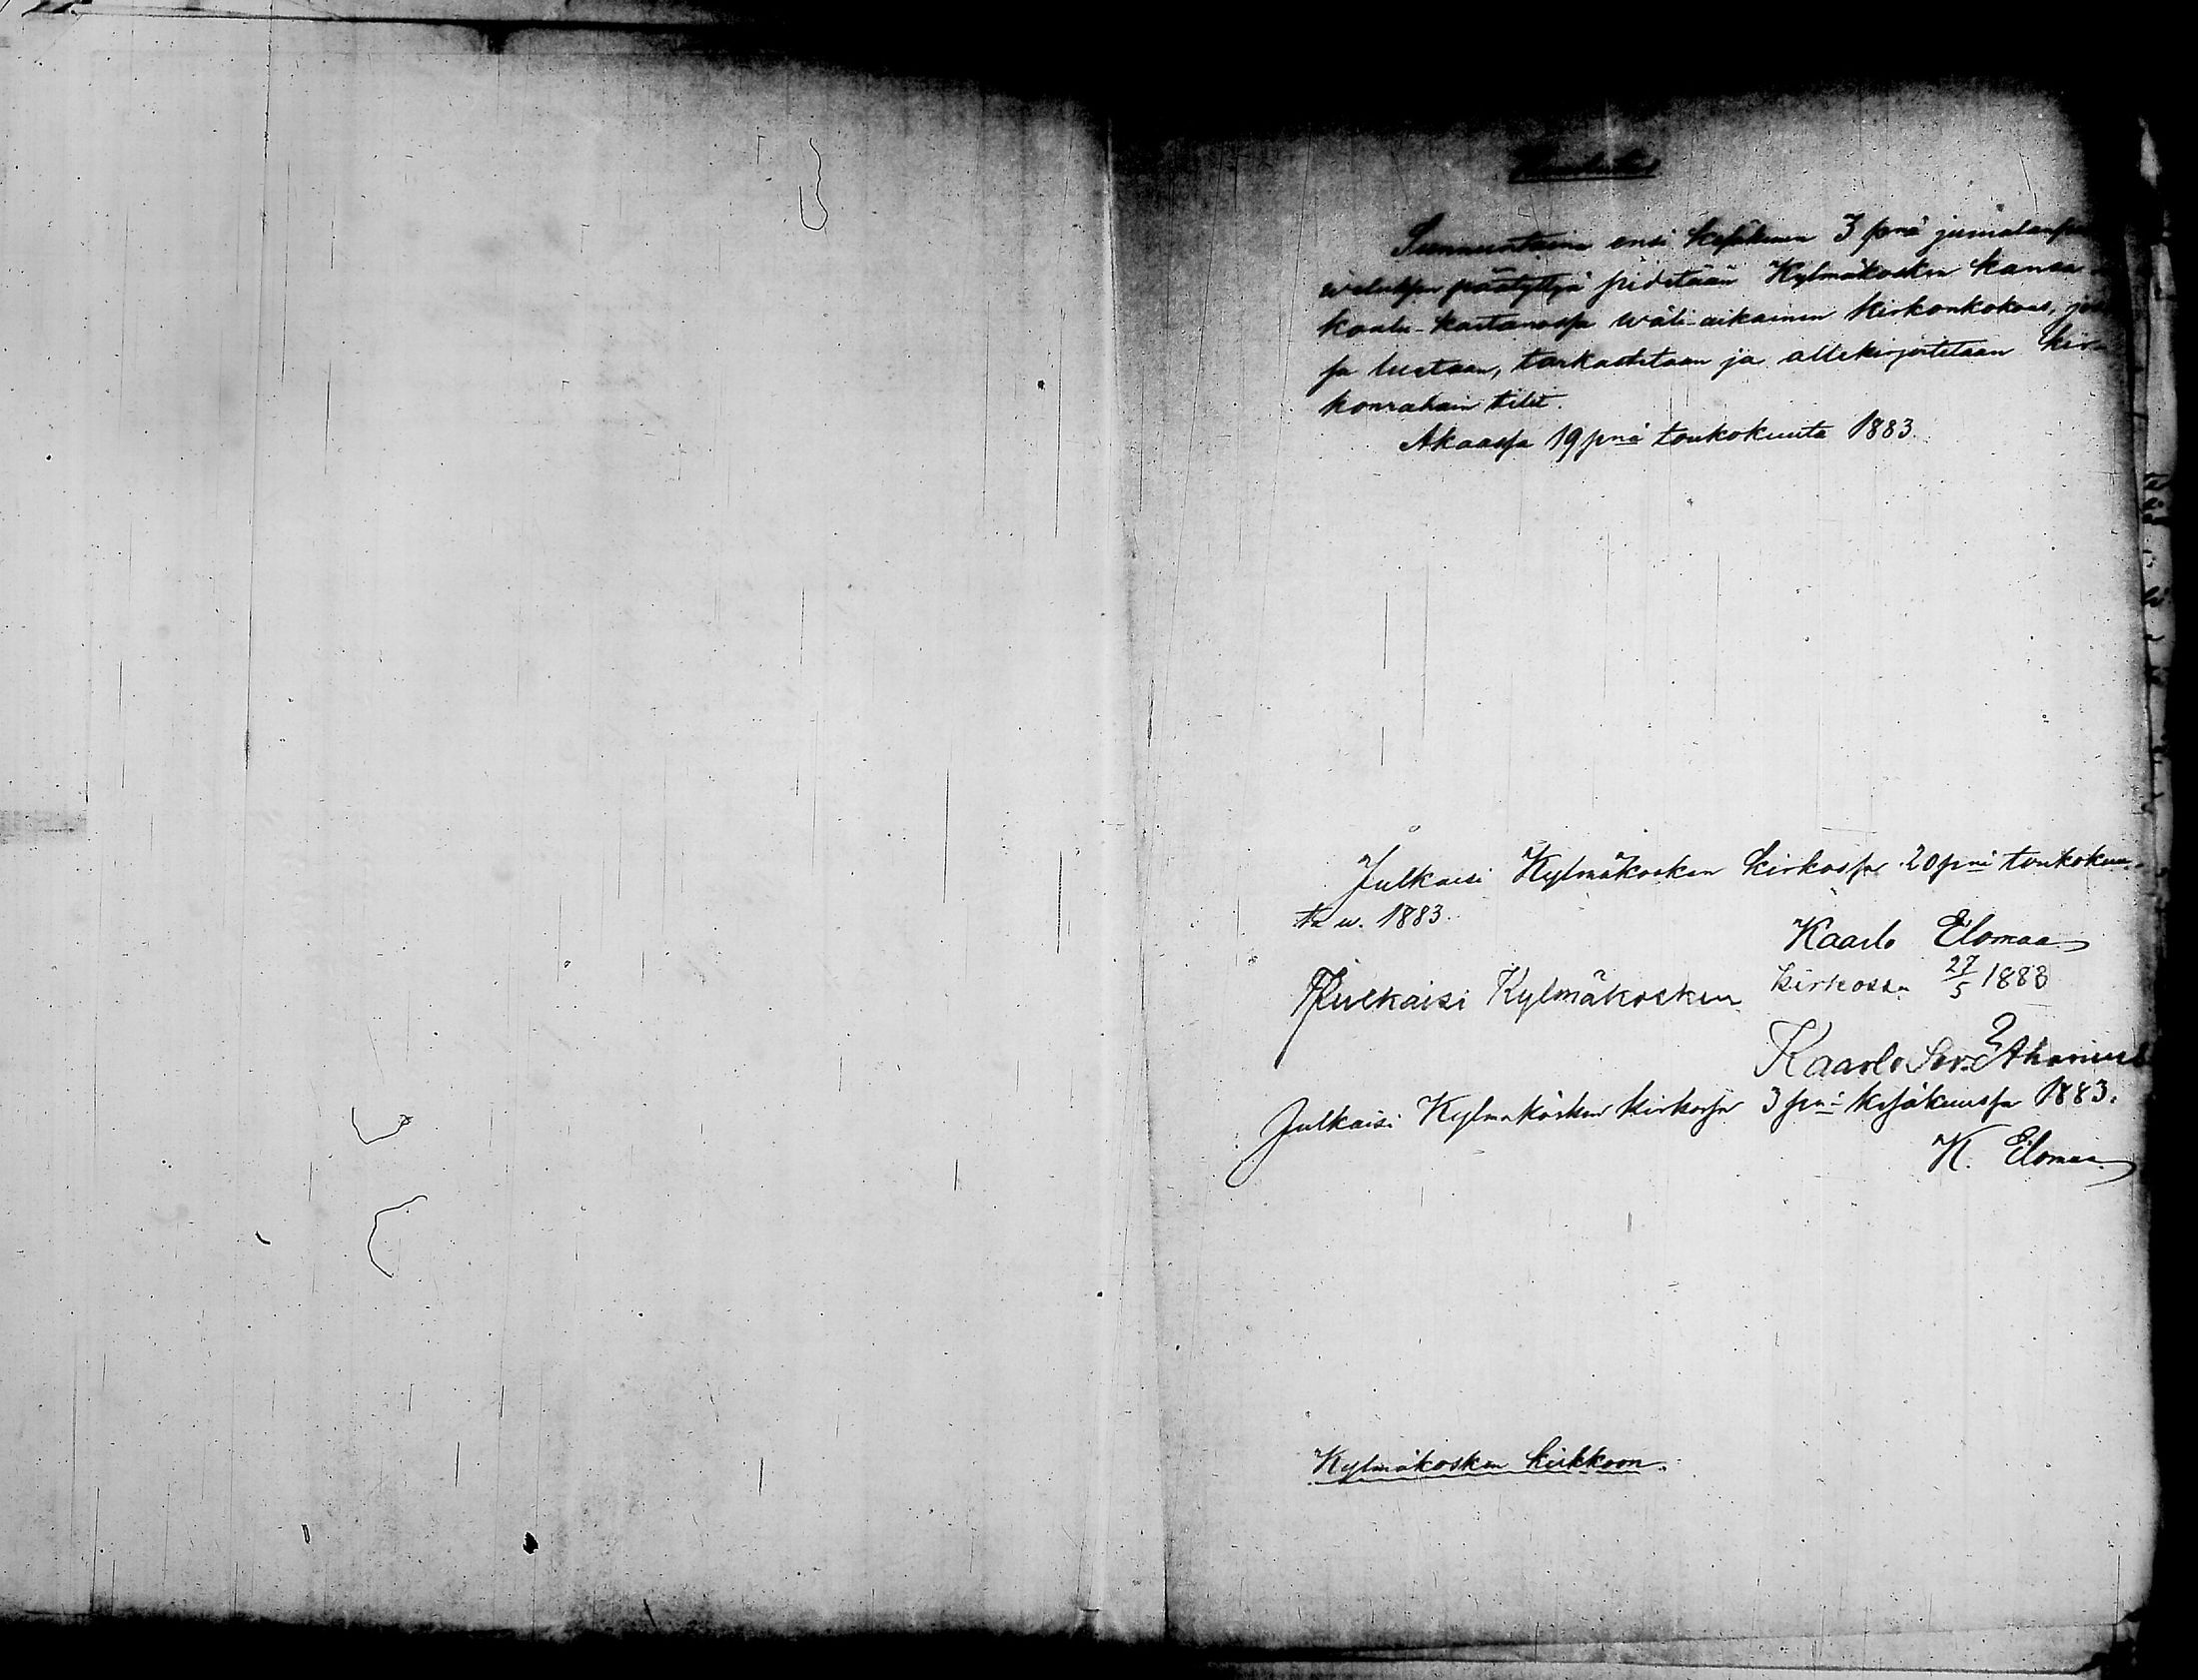 Kuulutus
Sunnuntaina ensi kesäkuun 3 pnä jumalanpal
weluksen päätyttyä pidetään Kylmäkosken kansa-
koulu-kartanossa wäli-aikainen kirkonkokous, jos
sa luetaan, tarkastetaan ja allekirjoitetaan kir-
konrahain tilit.
Akaassa 19 pnä toukokuuta 1883.
Julkaisi Kylmäkosken kirkossa 20 pnä toukokuu-
ta w. 1883.
Kaarlo Elomaa
Julkaisi Kylmäkosken kirkossa 27/5 1883
Kaarlo
Julkaisi Kylmäkosken kirkossa 3 pnä kesäkuussa 1883.
K. Elomaa
Kylmäkosken kirkkoon.